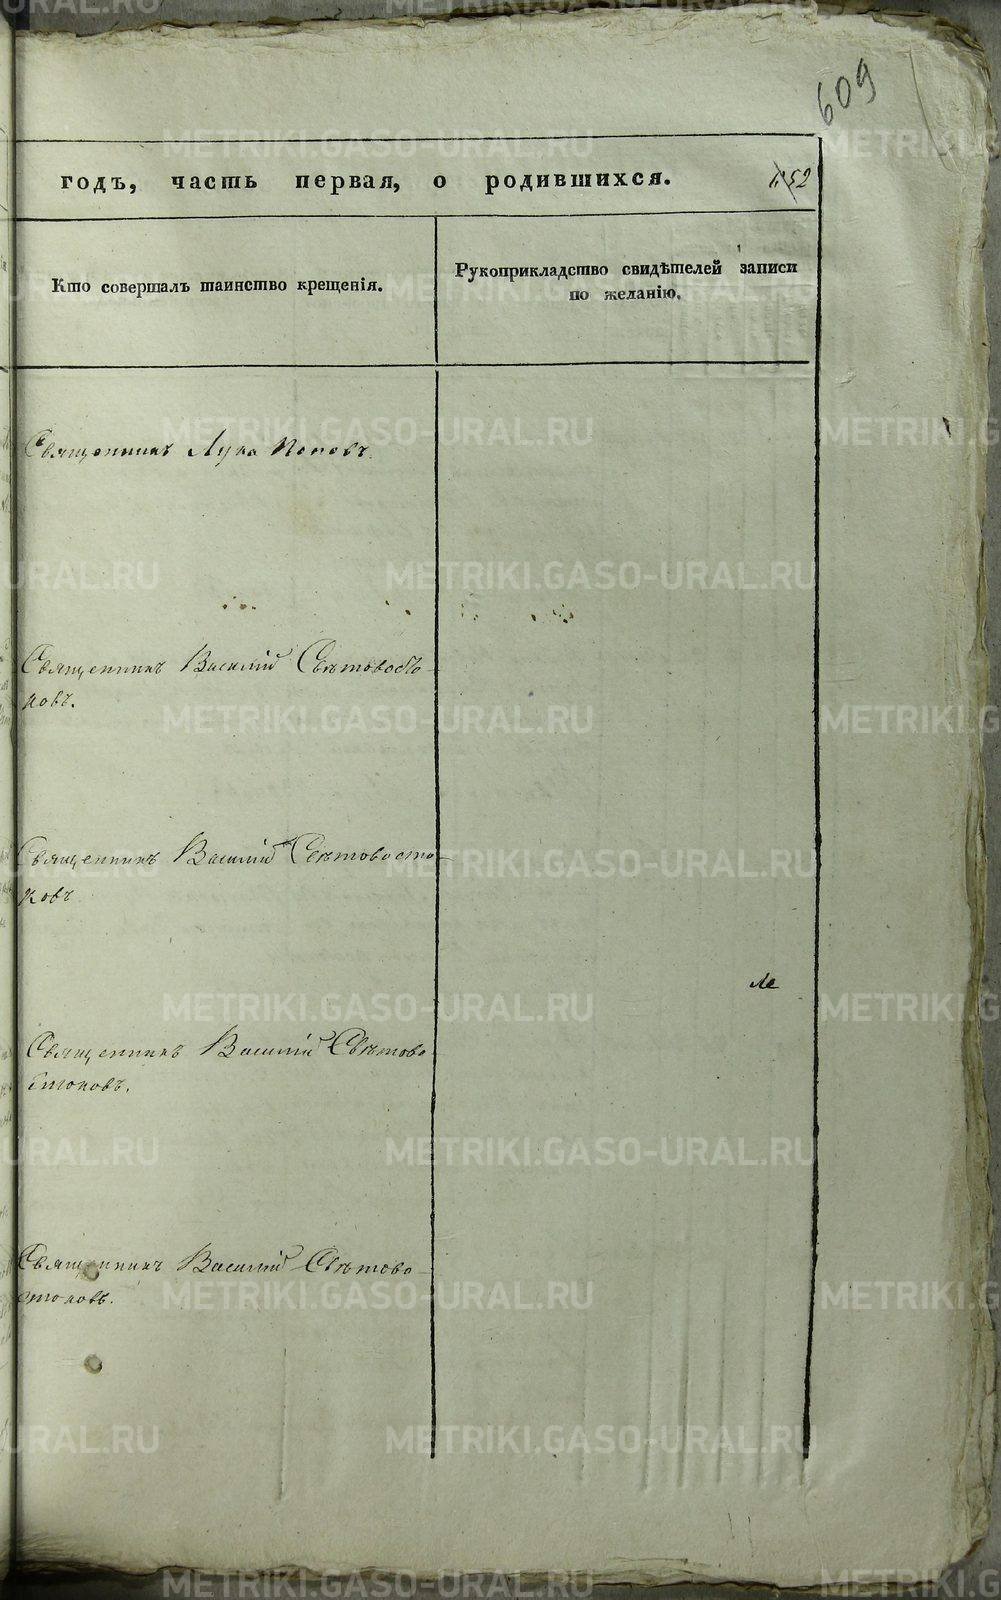 609
годъ, часть первая, о родившихся.
52
Кто совершалъ таинство крещенія.
Рукоприкладство свидѣтелей записи
по желанію.
Священникъ Лука Поповъ.
Священникъ Василій Свѣтовосто-
ковъ.
Священникъ Василій Свѣтовосто-
ковъ
Священникъ Василій Свѣтово
стоковъ.
Священникъ Василій Свѣтово-
стоковъ.
METRIKI.GASO-URAL.RU